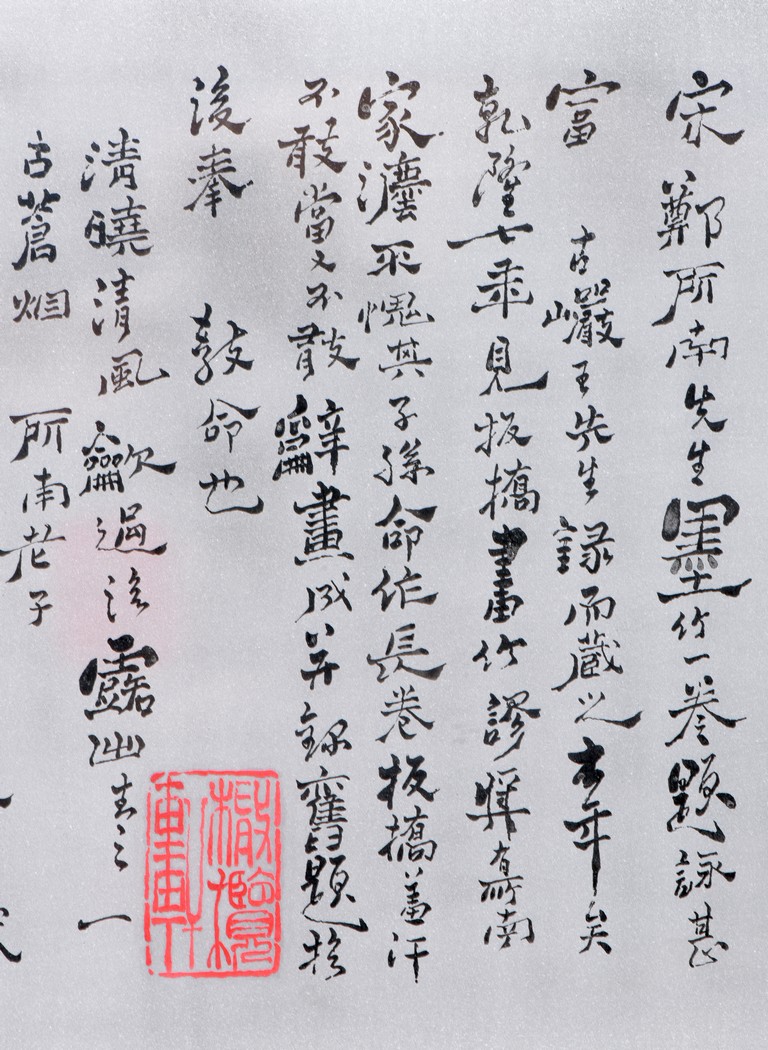 宋鄭所南先生墨竹一卷題詠甚
富 古巖王先生錄而藏之有年矣
乾隆七年見板橋畫竹謬獎有所南
家法不愧其子孫命作長卷板橋羞汗
不敢當又不敢辭畫成並錄舊題於
後奉 教命也
清曉清風 飲過浴露幽青之 一
古蒼烟 所南老子
橄欖軒